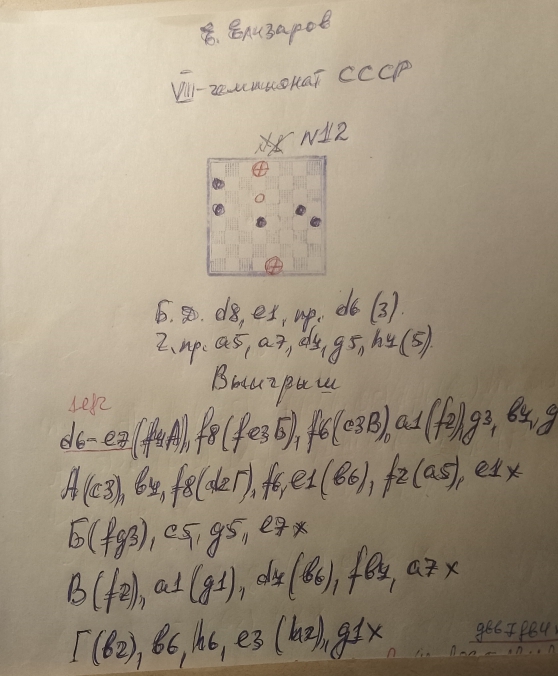 Е. Елизаров
VIII-чемпионат СССР
N12
Б. Д. d8, e1, пр. d6 (3).
Ч. пр. a5, a7, d4, g5, h4 (5).
Выигрыш
d6-e7 (f4A), f8 (fe3Б), f6 (c3В), a1 (f2), g3, в4, g
А (c3), в4, f8 (d2Г), f6, e1 (в6), f2 (a5), e1x
Б (fg3), c5, g5, e7x
В (f2), a1 (g1), d4 (в6), fв4, a7x
Г (в2), в6, h6, e3 (h2), g1x